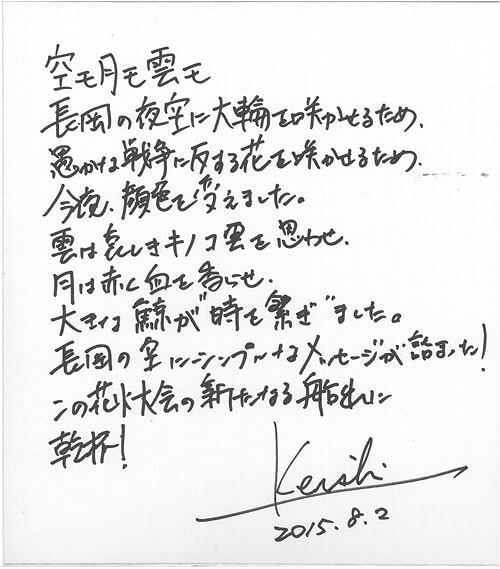 空モ月モ雲モ
長岡の夜空に大輪を咲かせるため、
愚かな戦争に反する花を咲かせるため、
今夜、顔色を変えました。
雲は哀しきキノコ雲を思わせ、
月は赤く血を香らせ、
大きな鯨が時を繋ぎました。
長岡の空にシンプルなメッセージが詰まった!
この花火大会の新たなる船出に
乾杯!
Keishi
2015.8.2